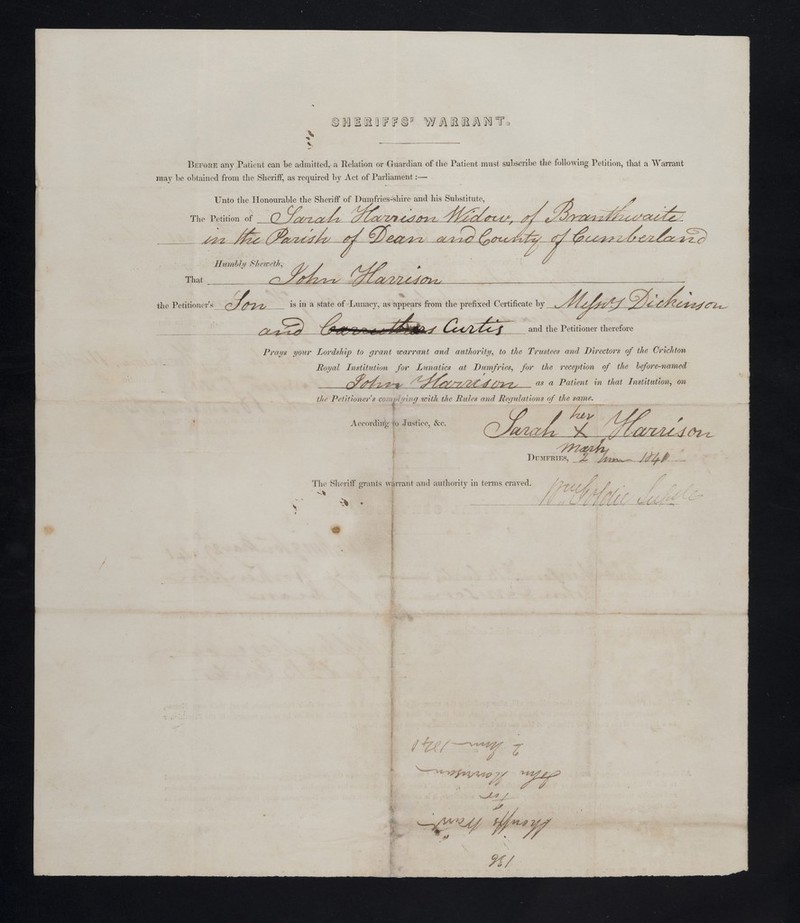 SHERIFFS' WARRANT.
BEFORE any Patient can be admitted, a Relation or Guardian of the Patient must subscribe the following Petition, that a Warrant
may be obtained from the Sheriff, as required by Act of Parliament:—
Unto the Honourable the Sheriff of Dumfries-shire and his Substitute,
The Petition of Sarah Harrison Widow, of Branthwaite
in the Parish of Dean and County of Cumberland
Humbly Sheweth,
That John Harrison
the Petitioner's Son is in a state of Lunacy, as appears from the prefixed Certificate by Messrs Dickinson
and Curtis and the Petitioner therefore
Prays your Lordship to grant warrant and authority, to the Trustees and Directors of the Crichton
Royal Institution for Lunatics at Dumfries, for the reception of the before-named
John Harrison as a Patient in that Institution, on
the Petitioner's complying with the Rules and Regulations of the same.
According to Justice, &c.
her
Sarah X Harrison
mark
DUMFRIES, 2 June 1841
The Sheriff grants warrant and authority in terms craved.
136
Sheriff's Warrt
for
John Harrison
2 June 1841